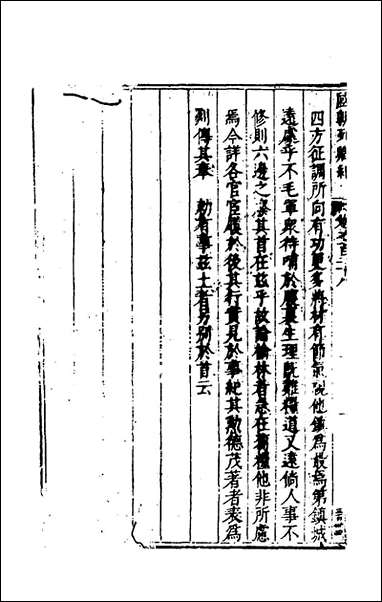 國朝列卿紀 卷之一百二十八
四方征調所向有功更多將材有節氣視他鎮為最焉第鎮城
遠處乎不毛軍眾待哺於生理既難糧道又遠倘人事不
修則六邊之其首在茲乎故論榆林者急在芻糧他非所慮
焉今詳各官官履於後其行實見於事紀其勳德茂著者表為
列傳其奉 勑有事茲土者另別於首云